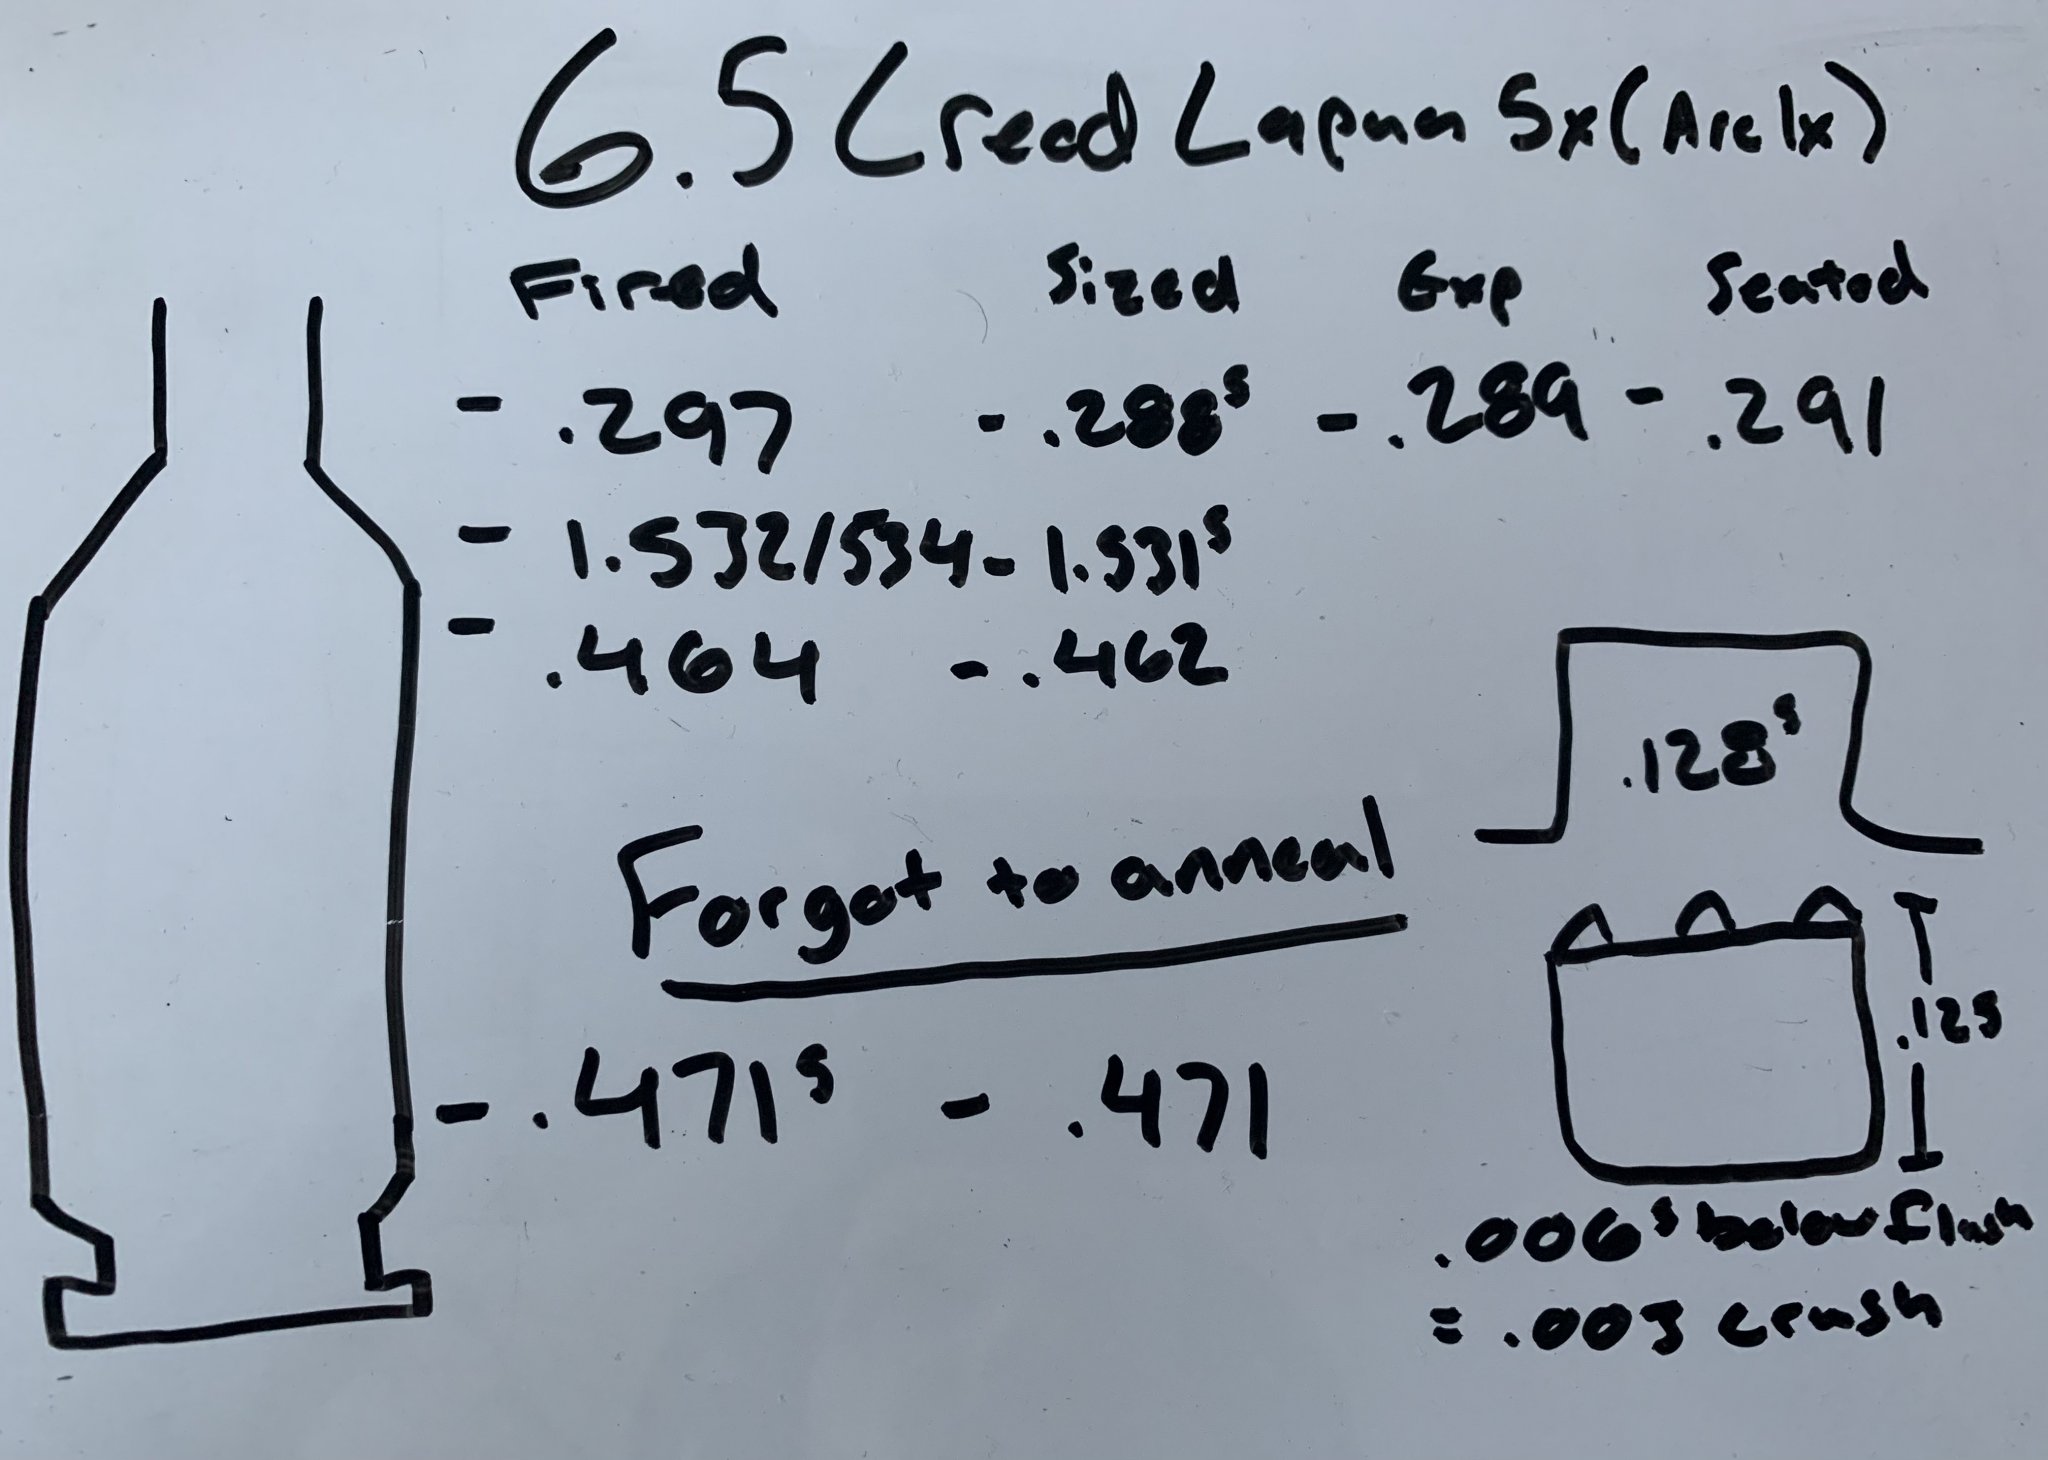 6.5 Creed Lapua 5x (Arc 1x)
Fired Sized Exp Seated
- .297 - .288⁵ - .289 - .291
- 1.532/534 - 1.531⁵
- .464 - .462
.128⁵
Forgot to anneal
.125
- .471⁵ - .471
.006⁵ below flush
= .003 crush